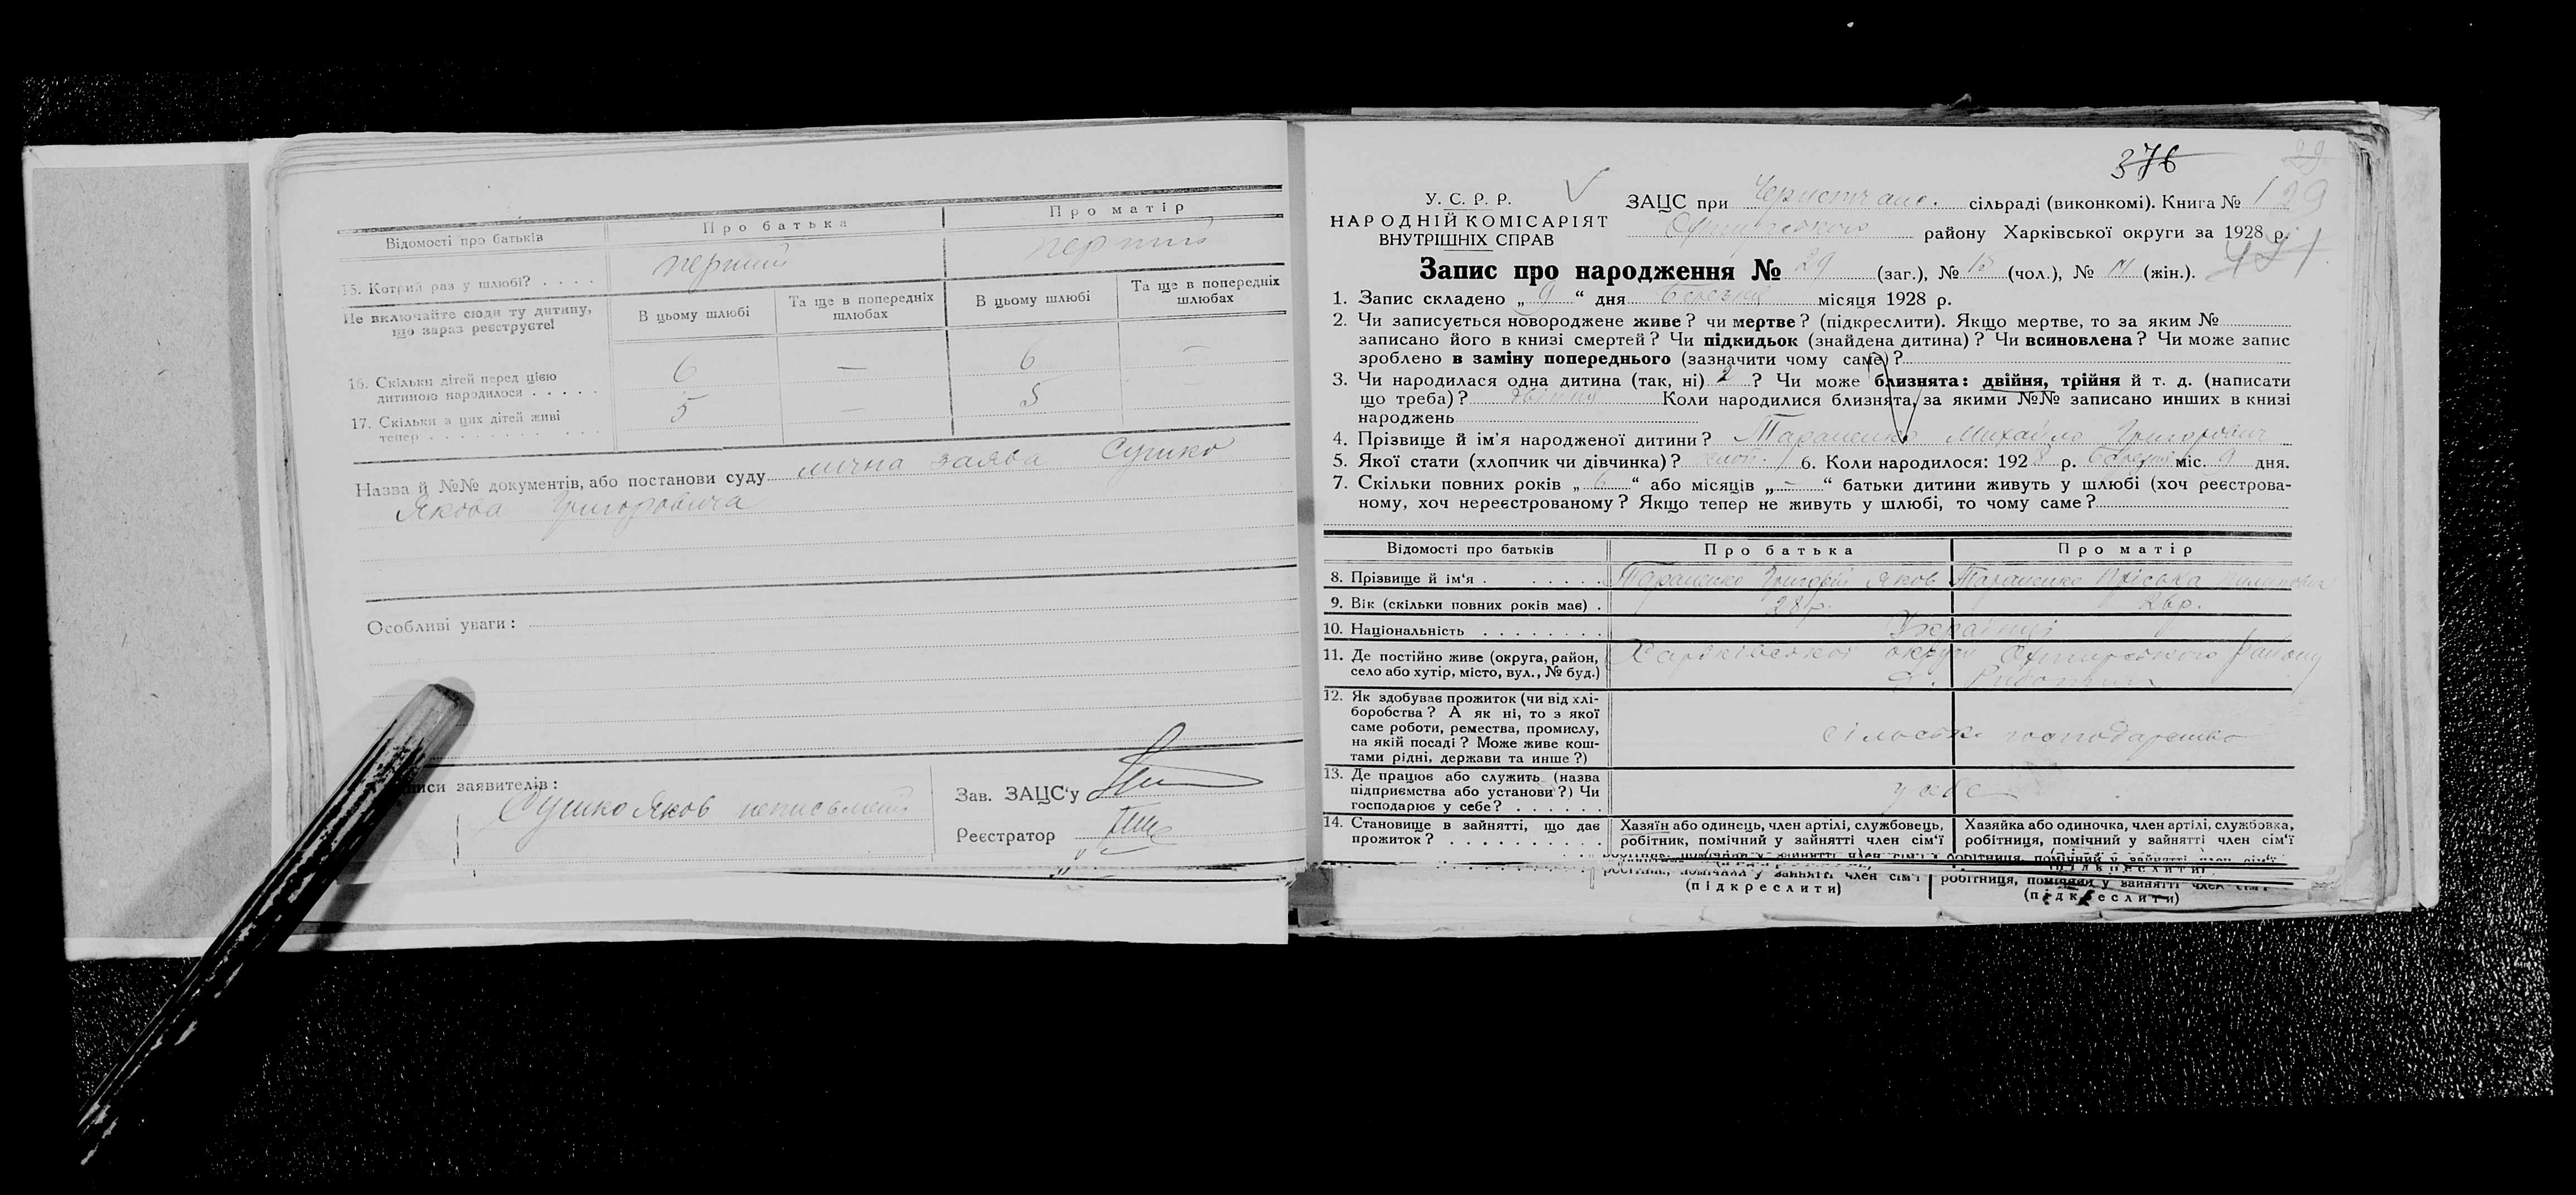 Відомості про батьків
Про батька
Про матір
15. Котрий раз у шлюбі? . . . .
перший
перший
Не включайте сюди ту дитину, що зараз реєструєте!
В цьому шлюбі
Та ще в попередніх шлюбах
В цьому шлюбі
Та ще в попередніх шлюбах
16. Скільки дітей перед цією
дитиною народилося . . . . .
6
—
6
—
17. Скільки з цих дітей живі
тепер . . . . . . . . . . . .
5
—
5
Назва й №№ документів, або постанови суду лична заява Сушко
Якова Григоровича
Особливі уваги:
писи заявителів:
Сушко Яков неписьмений
Зав. ЗАЦС'у
Реєстратор
376
29
У. С. Р. Р.
НАРОДНІЙ КОМІСАРІЯТ
ВНУТРІШНІХ СПРАВ
ЗАЦС при сільраді (виконкомі). Книга № 1 29
району Харківської округи за 1928 р.
441
Запис про народження № 29 (заг.), № 15 (чол.), № 14 (жін.).
1. Запис складено „ 9 “ дня Березня місяця 1928 р.
2. Чи записується новороджене живе? чи мертве? (підкреслити). Якщо мертве, то за яким №
записано його в книзі смертей? Чи підкидьок (знайдена дитина)? Чи всиновлена? Чи може запис
зроблено в заміну попереднього (зазначити чому саме)?
3. Чи народилася одна дитина (так, ні) 2 ? Чи може близнята: двійня, трійня й т. д. (написати
що треба)? двійня Коли народилися близнята, за якими №№ записано инших в книзі
народжень
4. Прізвище й ім'я народженої дитини? Тараненко Михайло Григорович
5. Якої стати (хлопчик чи дівчинка)? хлоп. 6. Коли народилося: 1928 р. Березня міс. 9 дня.
7. Скільки повних років „ 6 “ або місяців „ – “ батьки дитини живуть у шлюбі (хоч реєстрова-
ному, хоч нереєстрованому? Якщо тепер не живуть у шлюбі, то чому саме?
Відомості про батьків
Про батька
Про матір
8. Прізвище й ім'я . . . . . .
Тараненко Григорій Яков
Тараненко Пріська
9. Вік (скільки повних років має) .
28 р.
26 р.
10. Національність . . . . . . . .
Українці
11. Де постійно живе (округа, район,
село або хутір, місто, вул., № буд.)
Харківської округи Охтирського району
12. Як здобуває прожиток (чи від хлі-
боробства? А як ні, то з якої
саме роботи, ремества, промислу,
на якій посаді? Може живе кош-
тами рідні, держави та инше?)
сільське господарство
13. Де працює або служить (назва
підприємства або установи?) Чи
господарює у себе? . . . . . .
у себе
14. Становище в зайнятті, що дає
прожиток? . . . . . . . . . .
Хазяїн або одинець, член артілі, службовець,
робітник, помічний у зайнятті член сім'ї
Хазяйка або одиночка, член артілі, службовка,
робітниця, помічний у зайнятті член сім'ї
(підкреслити)
(підкреслити)